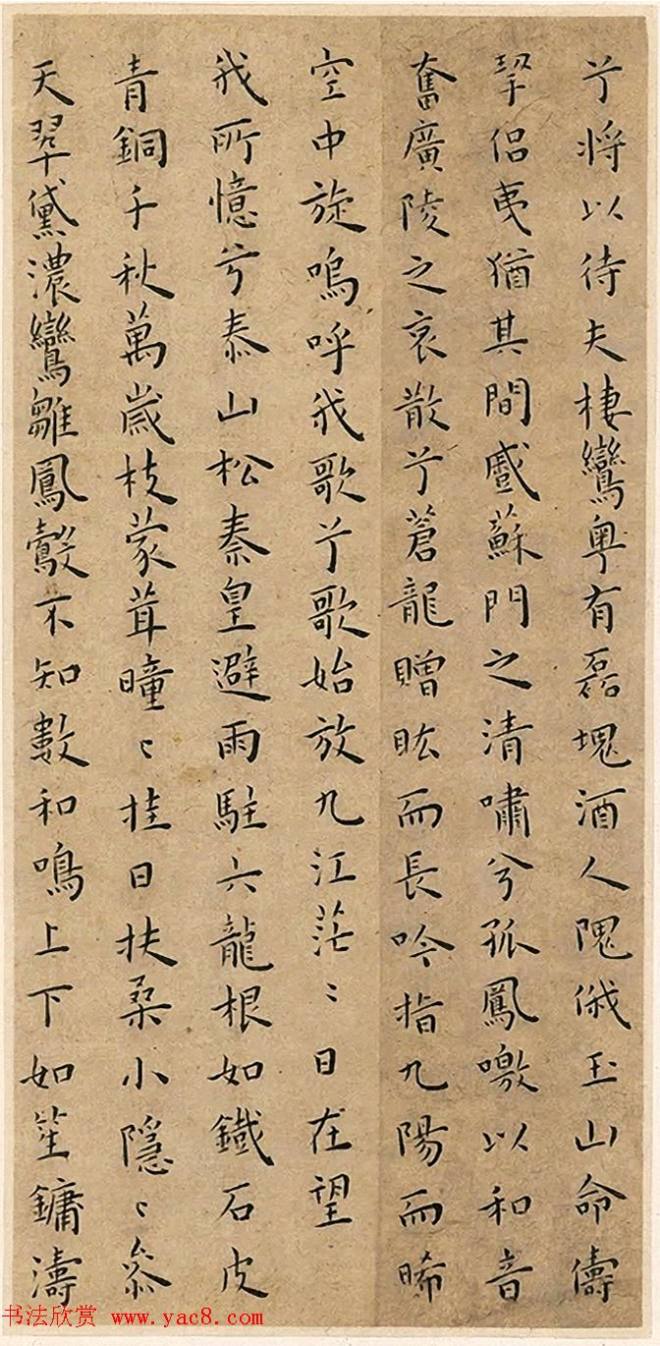 兮将以待夫棲鸞粤有磊塊酒人隗俄玉山命儔
挈侣夷猶其間感蘇門之清嘯兮孤鳳噭以和音
奮廣陵之哀散兮蒼龍蹭肱而長吟指九陽而晞
空中旋嗚呼我歌兮歌始放九江茫〻日在望
我所憶兮泰山松秦皇避雨駐六龍根如鐵石皮
青銅千秋萬歲枝蒙茸曈〻挂日扶桑小隱〻叅
天翠黛濃鸞雛鳳鷇不知數和鳴上下如笙鏞濤
书法欣赏 www.yac8.com